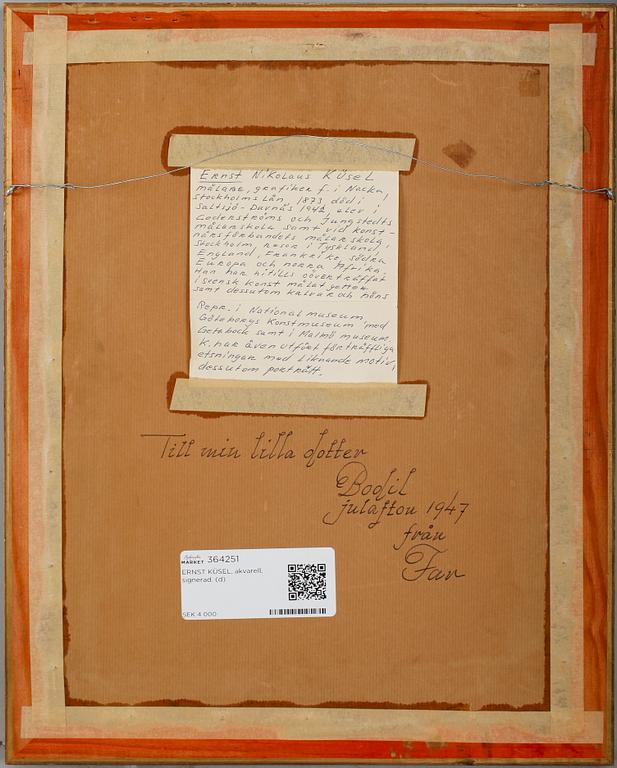 ERNST NIKOLAUS KÜSEL
målare, grafiker f. i Nacka,
Stockholms Län, 1873 död i
Saltsjö-Duvnäs 1942, elev i
Cederströms och Ljungstedts
målarskola samt vid konst-
närsförbundets målarskola,
Stockholm, resor i Tyskland
England, Frankrike, södra
Europa och norra Afrika.
Han har hitills oöverträffat
i svensk konst målat getter
samt dessutom kalvar och höns
Repr. i National museum
Göteborgs Konstmuseum med
Getabock samt i Malmö museum.
K. har även utfört förträffliga
etsningar med liknande motiv,
dessutom porträtt.
Till min lilla dotter
Bodil
julafton 1947
från
Far
MARKET 364251
ERNST KÜSEL, akvarell,
signerad. (d)
SEK 4 000